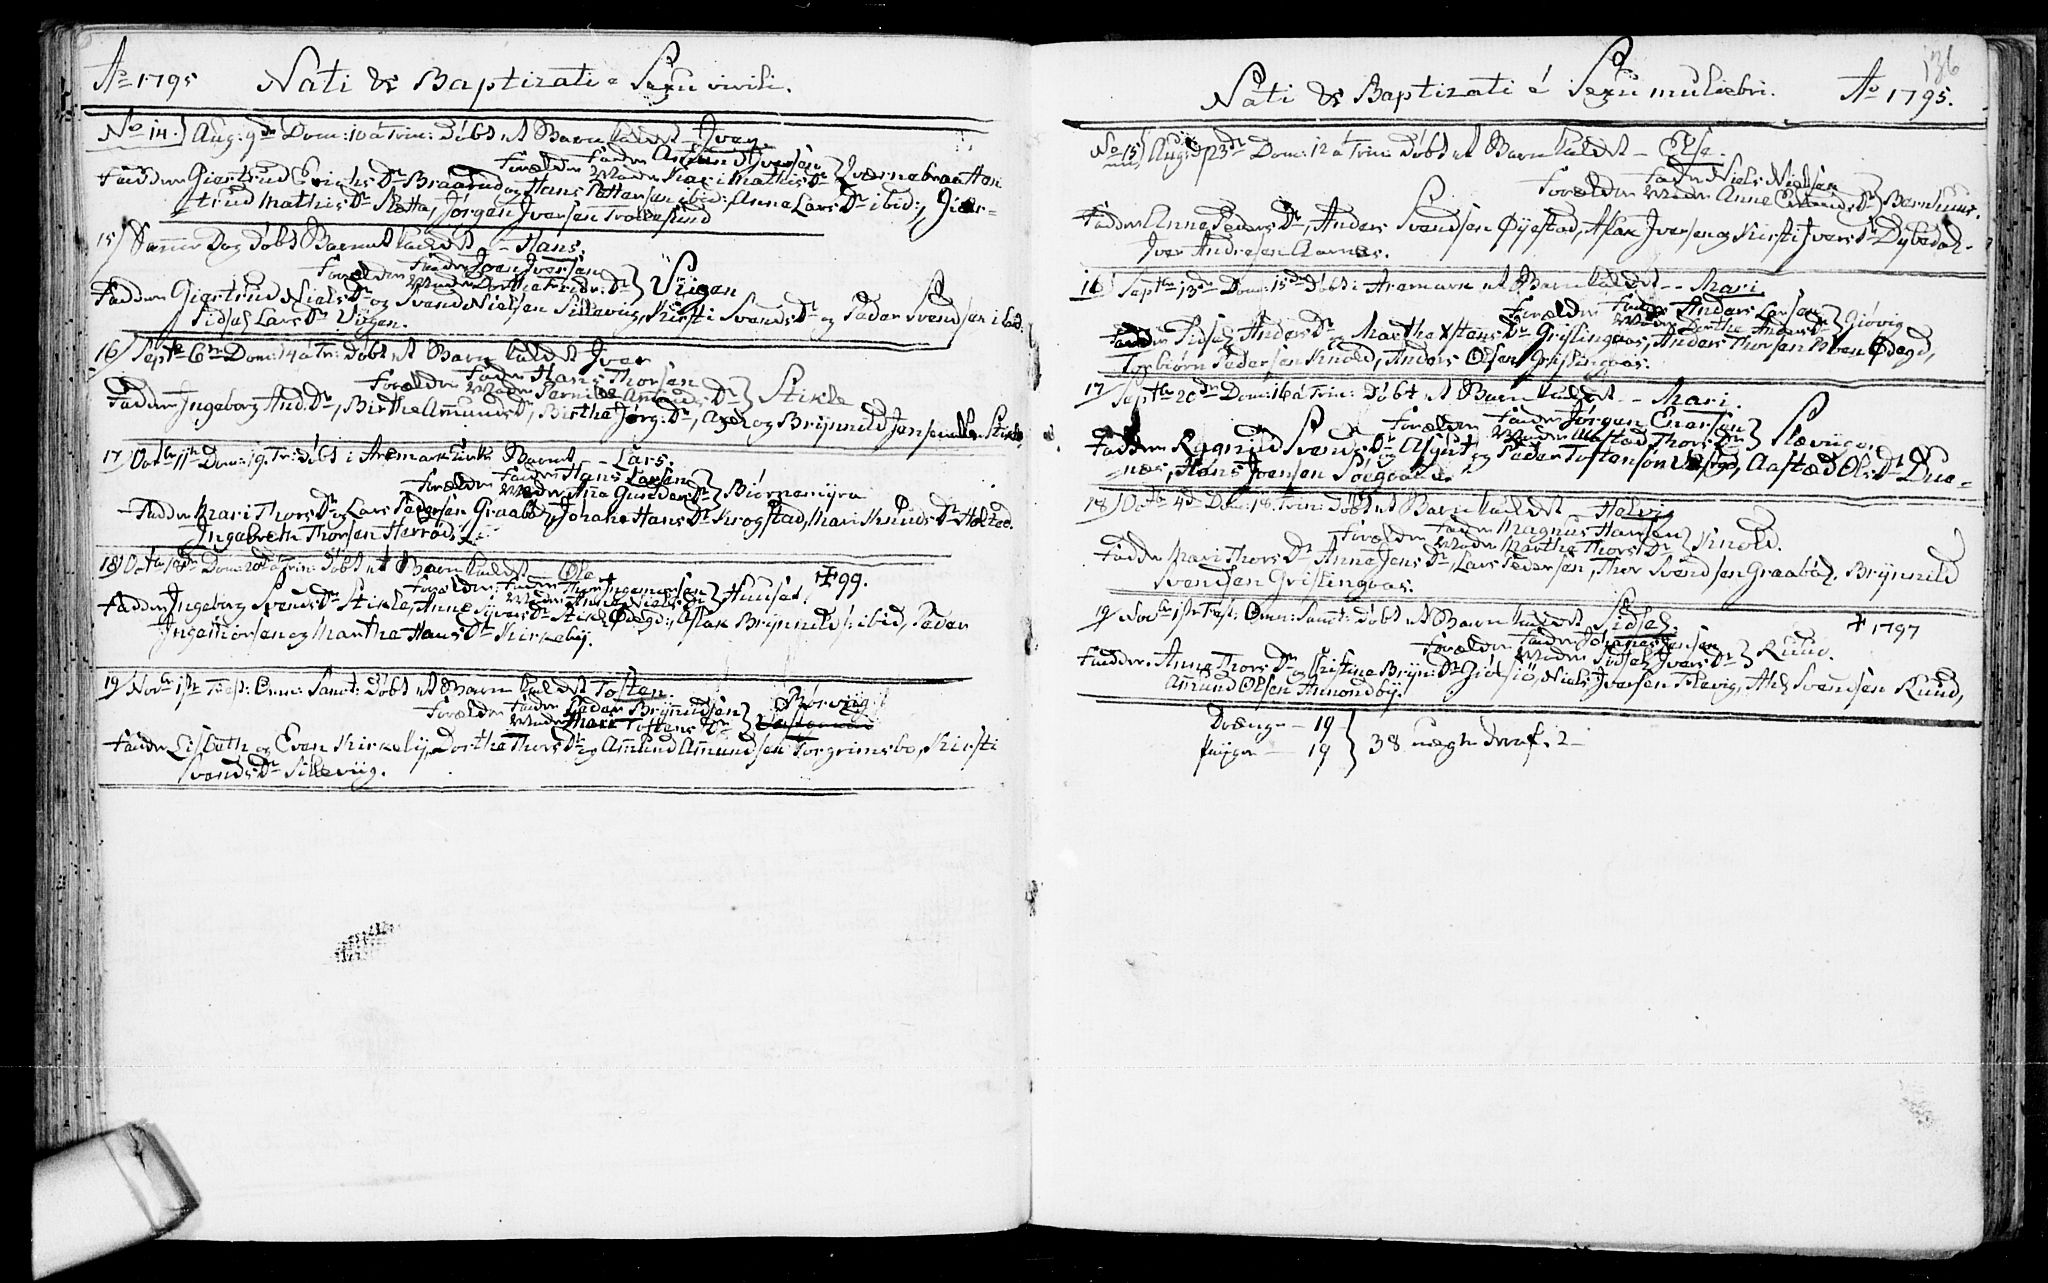 Ao 1795 Nati & Baptizati e Sexu virili.
No 14. Aug: 9de Dom: 10 a Trin: døbt et Barn kaldet Iver
Forældre Fader Amund Iversen
Moder Kari Mathis Dr
Faddere Giertrud Erichs Dr Braarud og Hans Pettersen ibid: Anne Lars Dr ibid:, Gier-
trud Mathis Dr Sletta, Jørgen Iversen
15 Samme Dag døbt Barnet kaldet - Hans.
Forældre Fader Joen Iversen
Moder Dorthe Fridr: Dr Viigen
Faddere Giertrud Niels Dr og Svend Nielsen Sillevig, Kirsti Svends Dr og Peder Svendsen ibid:
Sidsel Lars Dr Viigen.
16 Septbr 6te Dom: 14 a Tri: døbt et Barn kaldet Iver
Forældre Fader Hans Thorsen
Moder Pernille Amunds Dr Stikle
Faddere Ingeborg And: Dr, Birthe Amunds Dr, Birthe Jørg: Dr, Axel og Brynnild Jensen Stikle
17 Octbr 11te Dom: 19. Tri: døbt i Aremark Kirke Barnet - Lars.
Forældre Fader Hans Larsen
Moder Anna Gunders Dr Biørnemyra
Faddere Mari Thors Dr og Lars Pedersen Graabøl, Johane Hans Dr Krogstad, Mari Knuds Dr Holsted.
Ingebreth Thorsen Herrød.
18 Octbr 18de Dom: 20de a Trin: døbt et Barn kaldet Ole
Forældre Fader Thor Ingemorsen
Moder Niels Dr Huuset. ✝ 99.
Faddere Ingeborg Svends Dr Stikle, Anne Ivers Dr Stikl: Ødegd:, Aslak Brynnilds: ibid, Peder
Ingemorsen og Marthe Hans Dr Kirkebÿ.
19 Novbr 1ste Fest: Omn: Sanct: døbt et Barn kaldet Tosten.
Forældre Fader Peder Brynnildsen
Moder Mari Tostens Dr Børviig
Faddere Lisbeth og Even Kirkebÿ, Dorthe Thors Dr og Amund Amundsen Torgrimsbo, Kirsti
Svends Dr Sillevig.
136
Nati & Baptizati é Sexu muliebri. Ao 1795.
No 15 Aug: d 23de Dom: 12 a Trin: døbt et Barn kaldet - Else.
Forældre Fader Niels Nielsen
Moder Anne Dr Bernhuus.
Faddere Anne Peders Dr, Anders Svendsen Øÿestad, Aslak Iversen og Kirsti Ivers Dr Dybedal.
Iver Andresen Aarnes.
16 Septbr 13de Dom: 15de døbt i Aremark et Barn kaldet - Mari
Forældre Fader Anders Larsen
Moder Dorthe Anders Dr Giøvig
Faddere Sidsel Anders Dr og Marthe Xstens Dr Grislingaas, Anders Thorsen Ødegd,
Torbiørn Pedersen Knold, Anders Olsen Grislingaas.
17 Septbr 20de Dom: 16 a Trin: døbt et Barn kaldet - Mari.
Forældre Fader Jørgen Enersen
Moder Aastad Thors Dr Slæviigen
Faddere Ragnild Svends Dr og Peder Tostensøn, Aastæd Ols Dr Bue-
næs, Hans Joensen
18 Octbr 4de Dom: 18. Trin: døbt et Barn kaldet - Helvi
Forældre Fader Magnus Hansen
Moder Marthe Thors Dr Knold.
Faddere Mari Thors Dr, Anne Jens Dr, Lars Pedersen, Thor Svendsen Graabøl, Brynnild
Svendsen Grislingaas.
19 Novbr 1ste Fest: Omn: Sanct: døbt et Barn kaldet Sidsel.
Forældre Fader Johannes Jensen
Moder Sidsel Ivers Dr Ruud. ✝ 1797
Faddere. Anne Thors Dr og Kristine Bryn: Dr Giølsiø, Niels Iversen Tolevig, Svendsen Ruud,
Amund Olsen Amondbÿ.
Drænge - 19
Piiger - 19 } 38. uægte deraf. 2 -